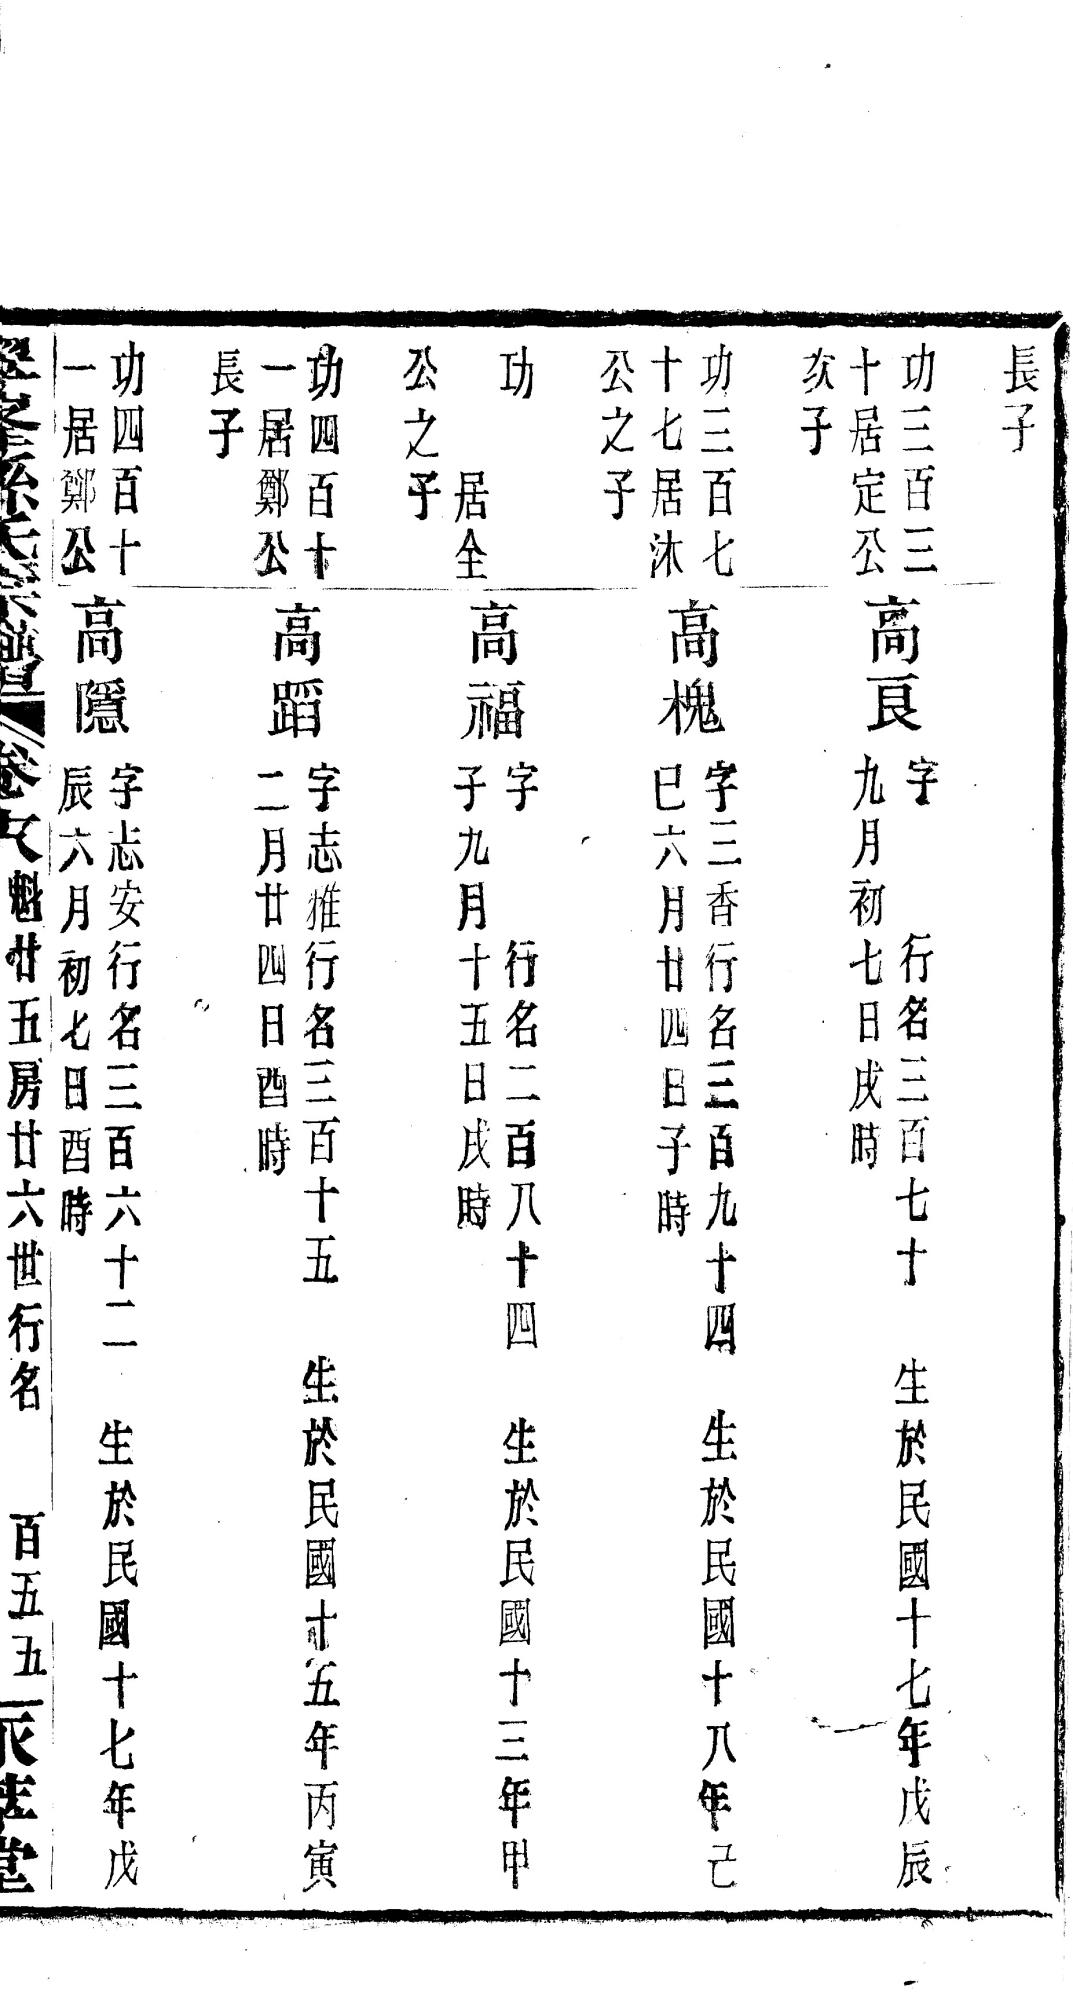 長子
功三百三
十居定公
次子
高良
字　行名三百七十　生於民國十七年戊辰
九月初七日戌時
功三百七
十七居沐
公之子
高槐
字三香行名三百九十四　生於民國十八年己
巳六月廿四日子時
功
居全
公之子
高福
字　行名二百八十四　生於民國十三年甲
子九月十五日戌時
功四百十
一居鄭公
長子
高蹈
字志雅行名三百十五　生於民國十五年丙寅
二月廿四日酉時
功四百十
一居鄭公
高隱
字志安行名三百六十二　生於民國十七年戊
辰六月初七日酉時
孫氏宗譜　卷　魁廿五房廿六世行名　百五五　萃堂